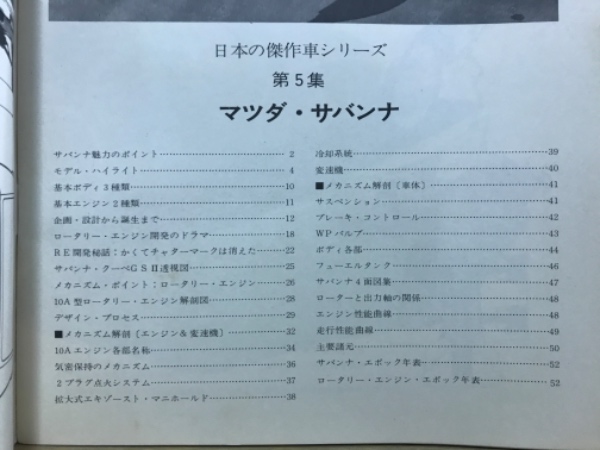 日本の傑作車シリーズ
第5集
マツダ・サバンナ
サバンナ魅力のポイント……2
モデル・ハイライト……4
基本ボディ3種類……10
基本エンジン2種類……11
企画・設計から誕生まで……12
ロータリー・エンジン開発のドラマ……18
RE開発秘話：かくてチャターマークは消えた……22
サバンナ・クーペGSⅡ透視図……25
メカニズム・ポイント：ロータリー・エンジン……26
10A型ロータリー・エンジン解剖図……28
デザイン・プロセス……29
■メカニズム解剖〔エンジン&変速機〕……32
10Aエンジン各部名称……34
気密保持のメカニズム……36
2プラグ点火システム……37
拡大式エキゾースト・マニホールド……38
冷却系統……39
変速機……40
■メカニズム解剖〔車体〕……41
サスペンション……41
ブレーキ・コントロール……42
WPバルブ……43
ボディ各部……44
フューエルタンク……46
サバンナ4面図集……47
ローターと出力軸の関係……48
エンジン性能曲線……48
走行性能曲線……49
主要諸元……50
サバンナ・エポック年表……52
ロータリー・エンジン・エポック年表……52